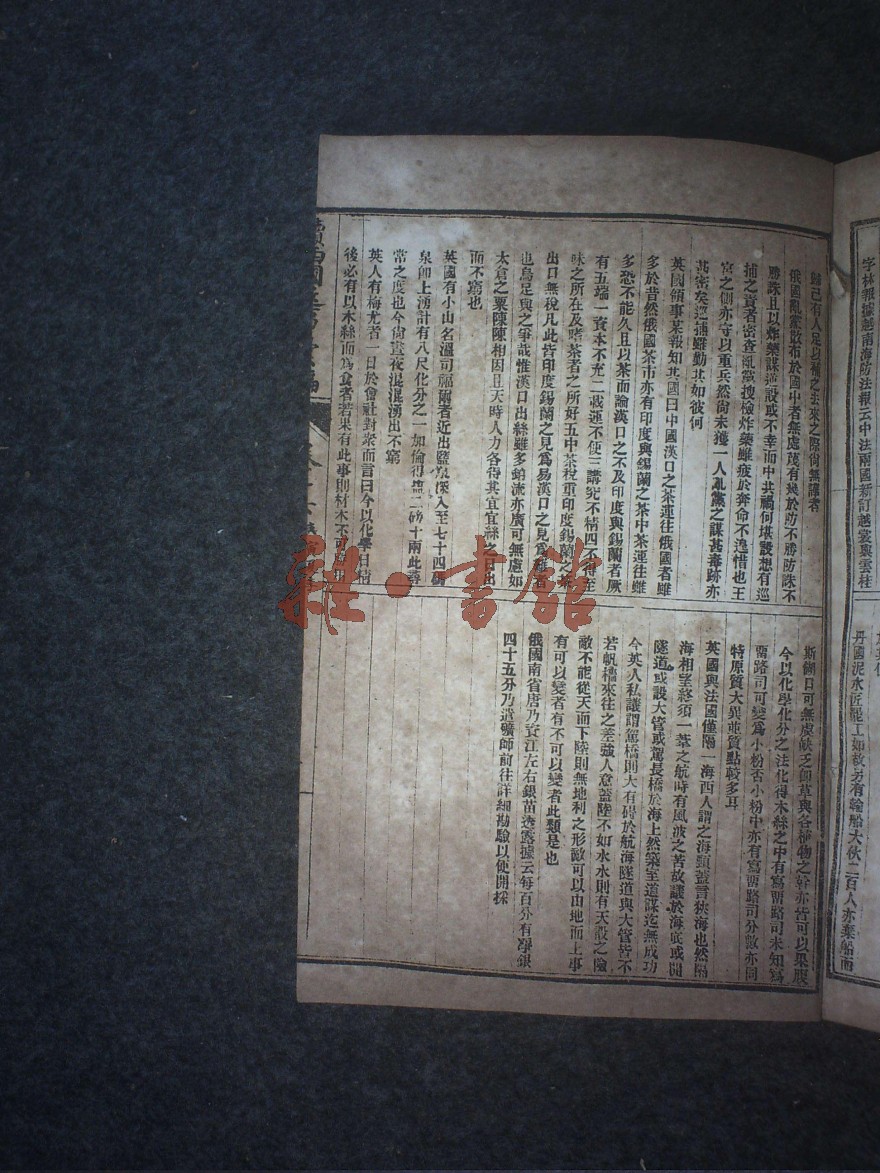 字林報據越南海防法報云中法兩國新訂越裳與雲桂
丹國泥水匠罷工如故另有輪船大伙二百人亦棄船而
歸已有人足以補之去來之際尙無諱者
俄國亂黨散布於國中者無處蔑有幾於防不勝防誅不
勝誅且以炸藥謀逆設或不幸而中其禍何堪設想有巡
捕之責者密查亂黨搜檢炸藥雖疲於奔命不遑惜也王
宮之側亦守以重兵然尙未獲一人亂黨之謀甚毒跡亦
甚密矣巡捕雖勤其如彼何
英國領事某報知其國曰中國漢口之茶運往俄國者雖
多於昔然俄國茶市亦有印度與錫蘭之茶中茶運往雖
多恐不能久且以茶而論漢口之不及印度與錫蘭者厥
有五端一資本不充二載運不便三講究不精四不
味之所在及嗜茶者之所好五中茶稅重印度錫蘭之茶
出口無稅凡此皆印度錫蘭之見爲易漢口之見爲難者
也烏足與之爭哉惟漢口出絲雖多銷流亦廣可無慮如
太倉之粟陳陳相因且天時人力各得其宜宜絲之
而不窮也
英國有小山名溫司福爾者近出鹽泉深入至七十四碼
泉卽上湧計有八尺化分之一加倫得鹽二磅十兩此尋
常之度也今尙晝夜混混湧出不窮
英人有梅尤者一日於會社對衆而言曰今以化學日精
後必有以木絲而爲食者若果有此事則材木不可
斯餬口可無虞缺乏卽草與各植物之幹亦皆可以果腹
今以化學化分之法化得木絲之中有寫留路司未知寫
留路司可變爲小粉否小粉中亦有寫留路司分數亦同
特原質大異並質點較多耳
英國與法國僅隔一海西人謂之海頸蓋言狹海也然隔
海相望終須一葦之航時有風波之苦故議於海底或開
隧道或設大管或駕長橋於海上然築室道謀迄無成功
今英人私議謂駕橋則大有碍於航海隧道與大管皆不
若帆檣來往之差強人意蓋陸不如水水則有天設之險
敵不能從天而下陸則無地利之形敵可以由地而上事
有可以變者有不可以變者此類是也
俄國南省唐乃愛江左右銀苗透露據云每百分有淨銀
四十五分乃遣礦師前往詳細勘驗以便開採